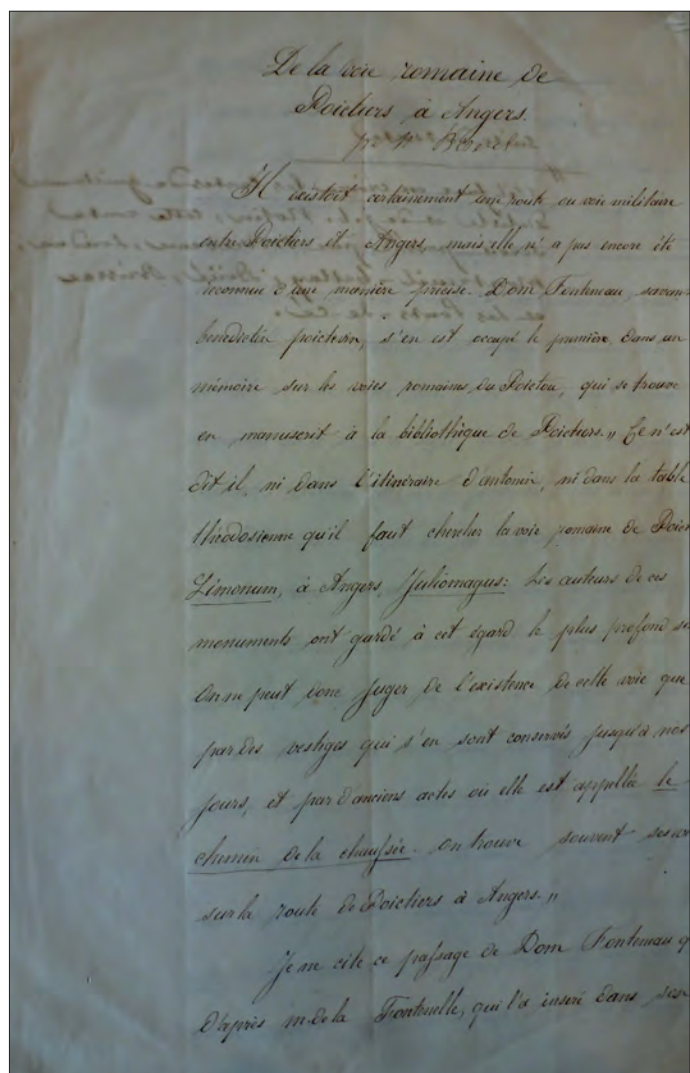 De la voie romaine de
Poictiers à Angers.
Il existoit certainement une route ou voie militaire
entre Poictiers et Angers, mais elle n'a pas encore été
reconnue d'une manière précise. Dom Fonteneau, savan
benedictin poictevin, s'en est occupé le première dans un
mémoire sur les voies romaines du Poictou, qui se trouve
en manuscrit à la bibliothèque de Poictiers. " Ce n'est
dit il, ni dans l'itinéraire d'antonin, ni dans la table
théodosienne qu'il faut chercher la voie romaine de Poict
Limonum, à Angers, Juliomagus: Les auteurs de ces
monuments ont gardé à cet égard le plus profond si
On ne peut donc juger de l'existence de cette voie que
par des vestiges qui s'en sont conservés jusqu'à nos
jours, et par d'anciens actes où elle est appellée le
chemin de la chaussée. on trouve souvent
sur la route de Poictiers à Angers. "
Je ne cite ce passage de Dom Fonteneau q
D'après m. de la Fontenelle, qui l'a inséré dans